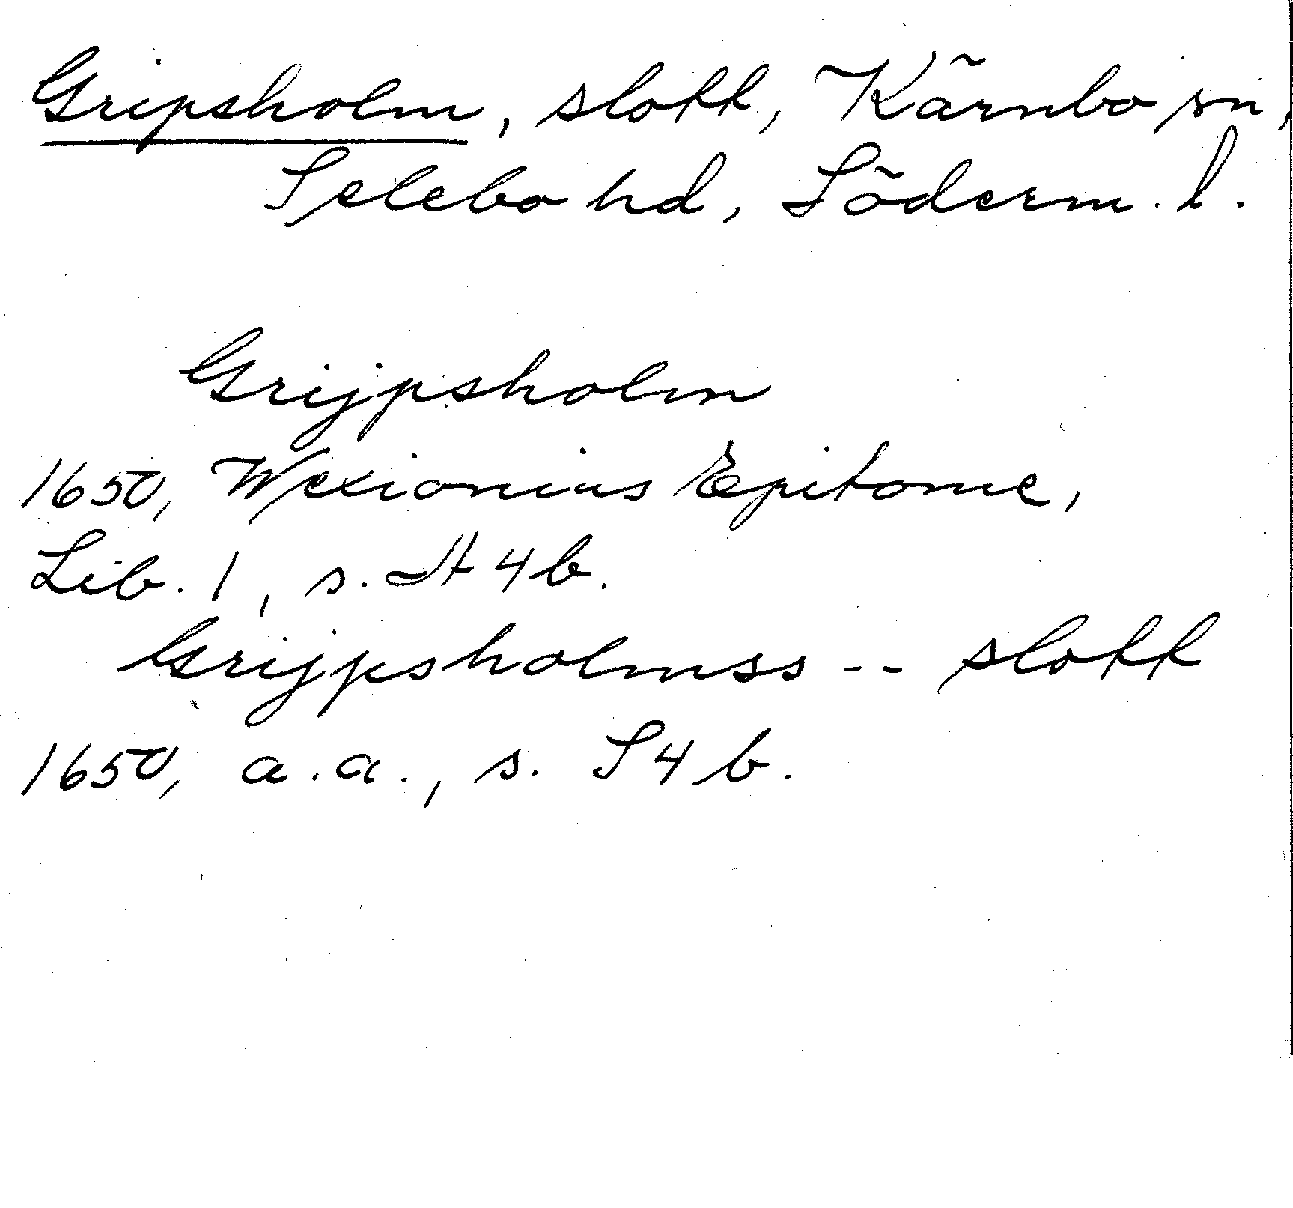 Gripsholm, slott, Kärnbo sn,
Selebo hd, Söderm. l.
Grijpsholm
1650, Wexionius Epitome,
Lib. 1, s. H 4 b.
Grijpsholmss -- slott
1650, a.a., s. S 4 b.